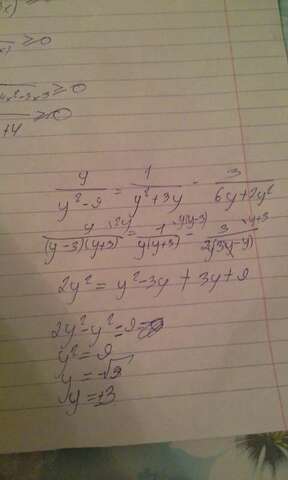 ≥0
≥0
≥0
+4 ≥0
y/(y²-9) = 1/(y²+3y) - 3/(6y+2y²)
y/((y-3)(y+3)) = 1/(y(y+3)) - 3/(2(3y-y))
2y² = y²-3y + 3y+9
2y²-y²=9=
y²=9
y=√9
y=±3